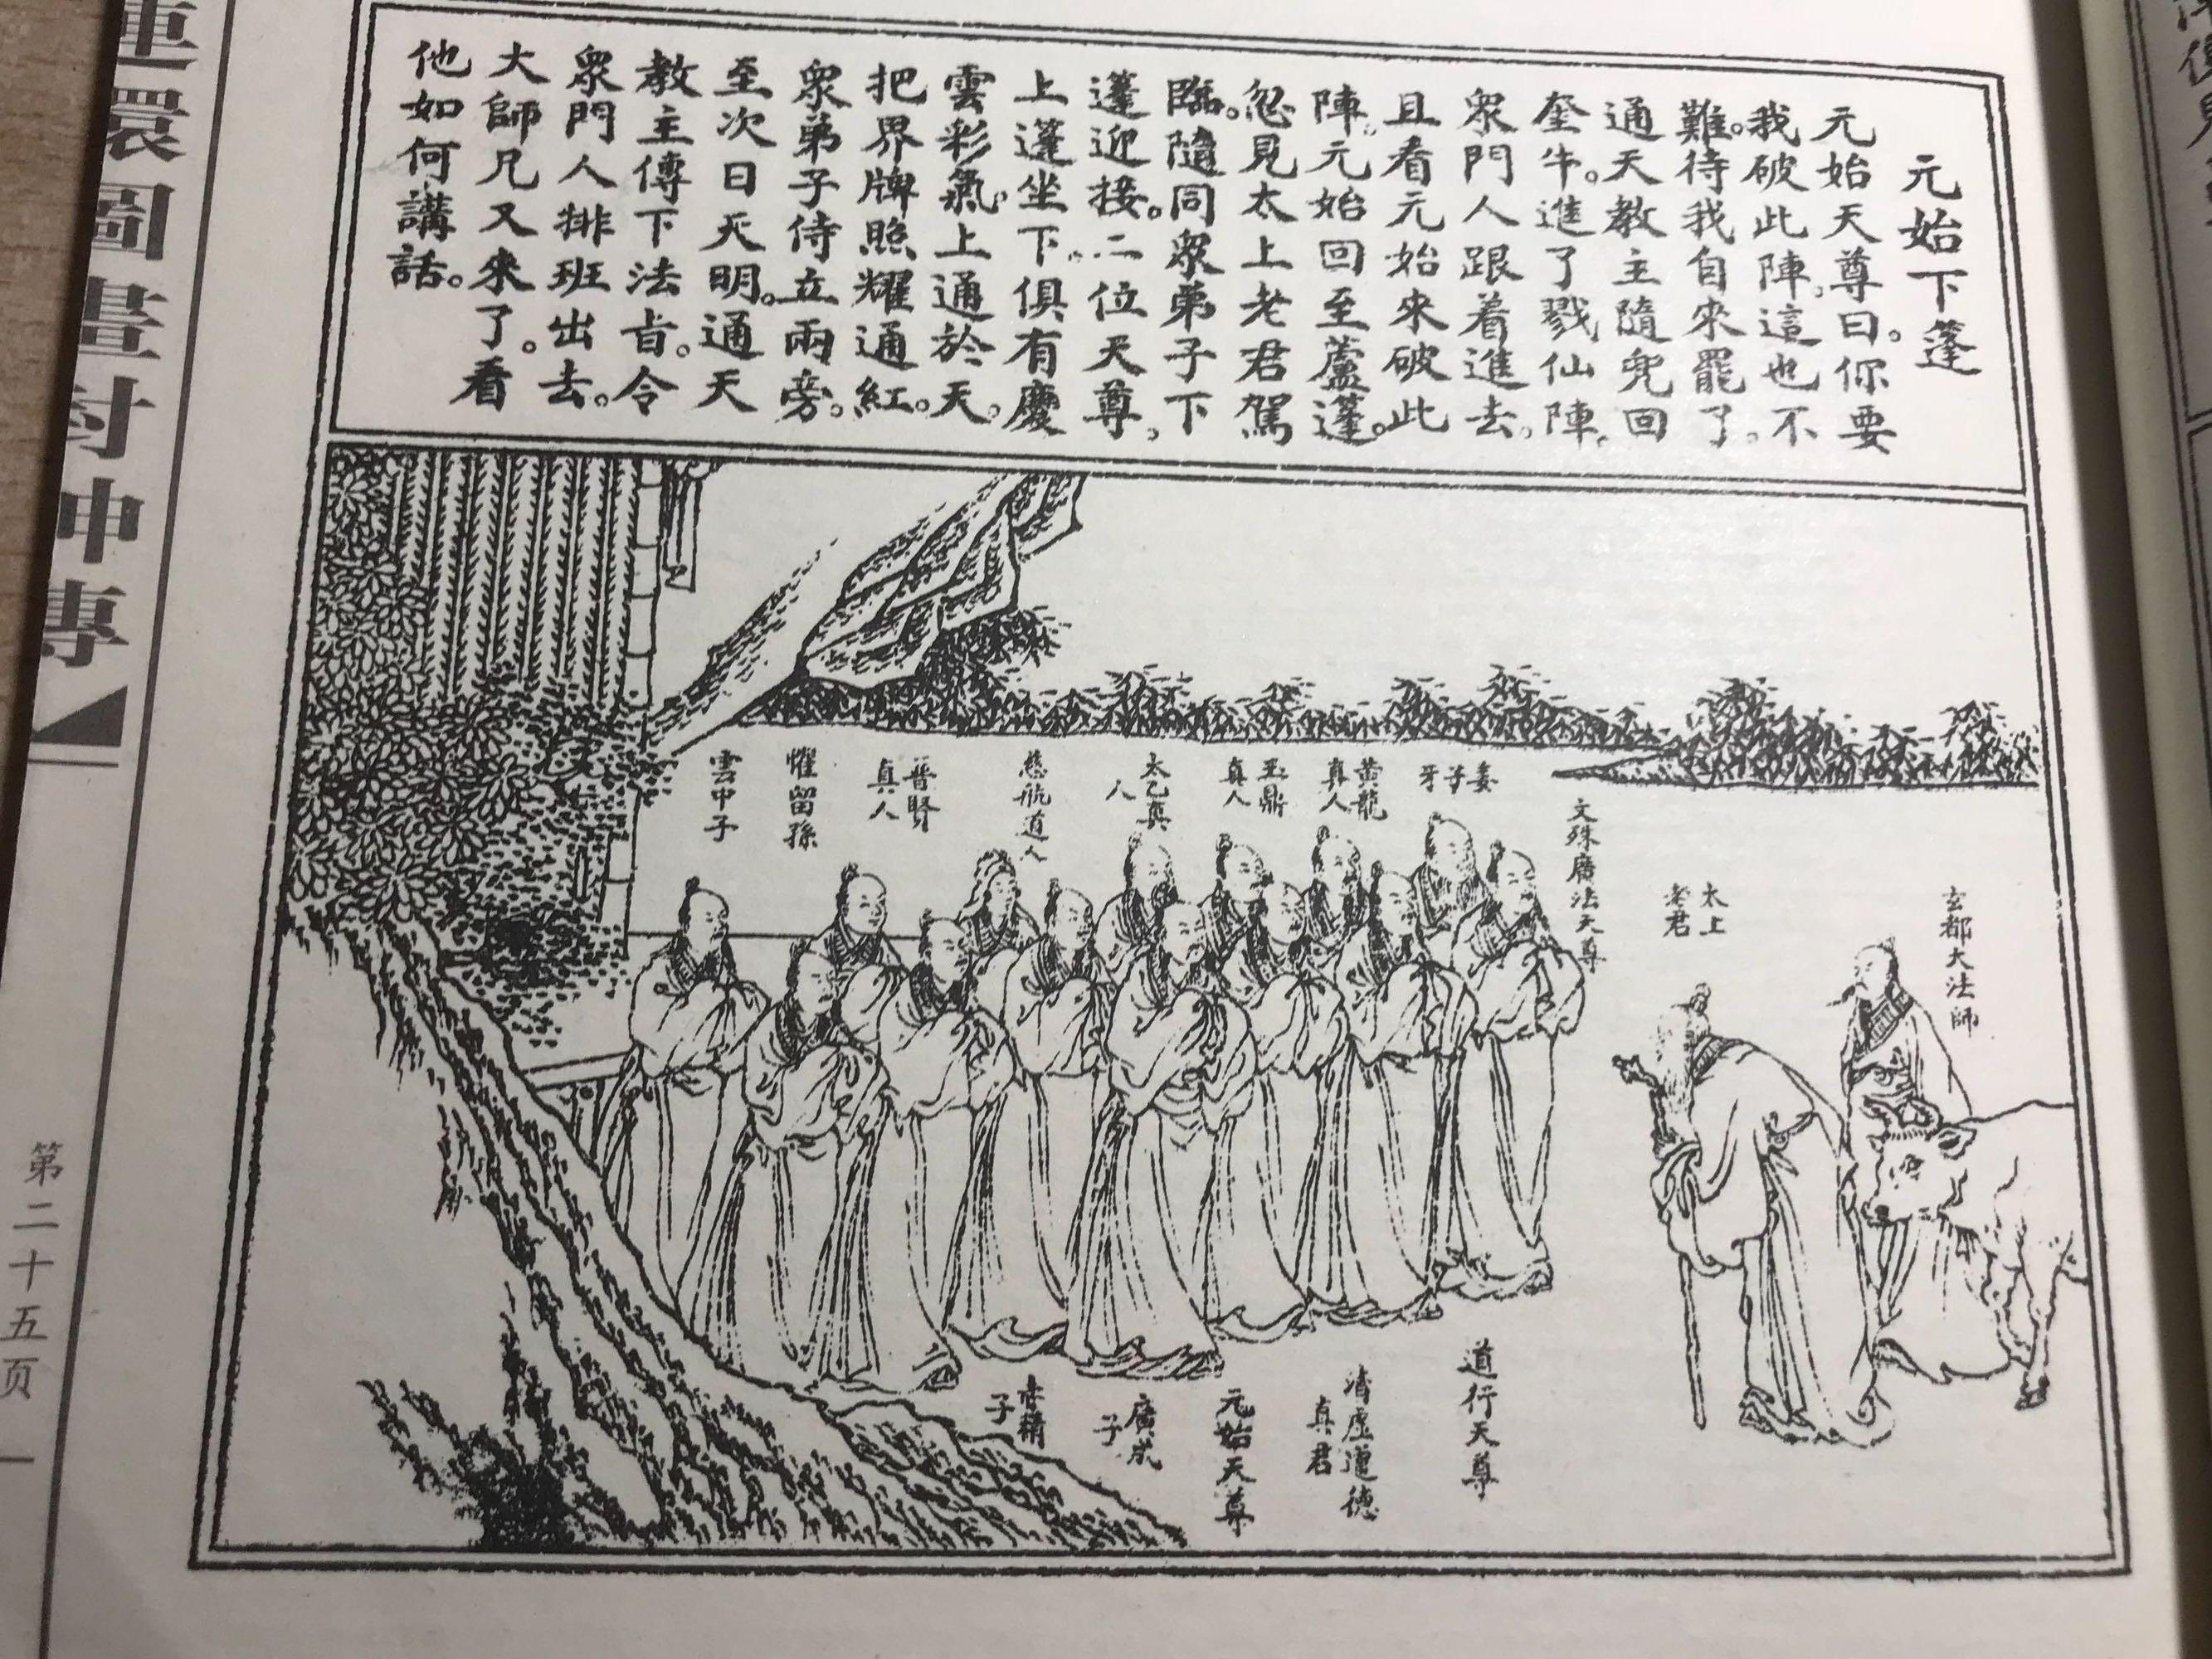 元始下蓬
元始天尊曰。你要
我破此陣。這也不
難。待我自來罷了。
通天教主隨兜回
奎牛。進了戮仙陣。
眾門人跟着進去。
且看元始來破此
陣。元始回至蘆蓬。
忽見太上老君駕
臨。隨同眾弟子下
蓬迎接。二位天尊。
上蓬坐下。俱有慶
雲彩氣。上通於天。
把界牌照耀通紅。
眾弟子侍立兩旁。
至次日天明。通天
教主傳下法旨。令
眾門人排班出去。
大師凡又來了。看
他如何講話。
玄都大法師
太上
老君
文殊廣法天尊
姜
子
牙
黃龍
真人
玉鼎
真人
太乙真
人
慈航道人
普賢
真人
懼留孫
雲中子
道行天尊
清虛道德
真君
元始天尊
廣成
子
子
連環圖畫封神傳
第二十五页